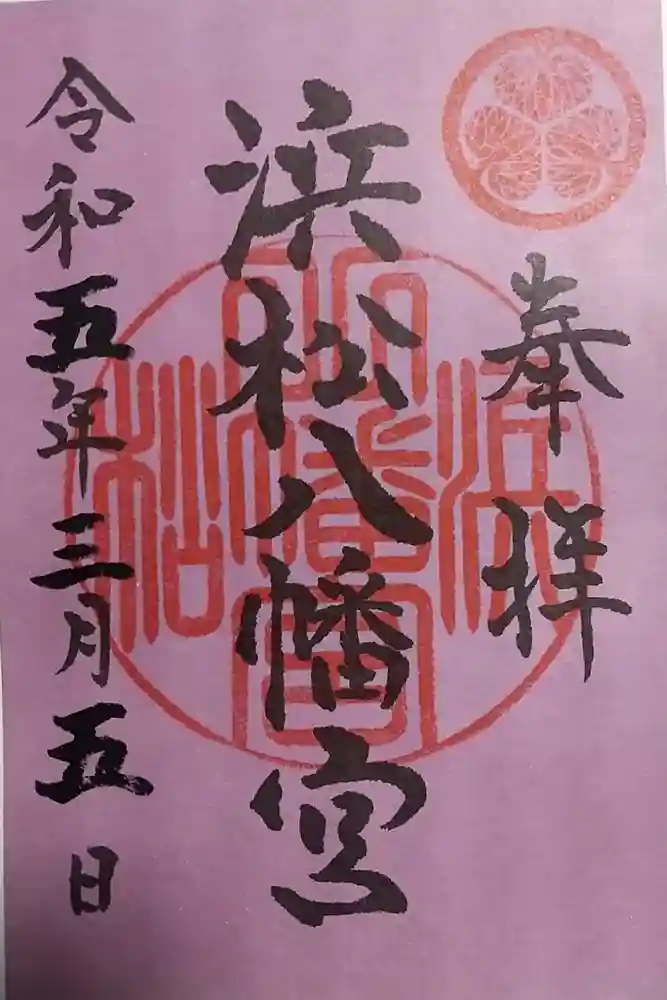 奉拝
浜松八幡宮
令和五年三月五日
浜松八幡宮